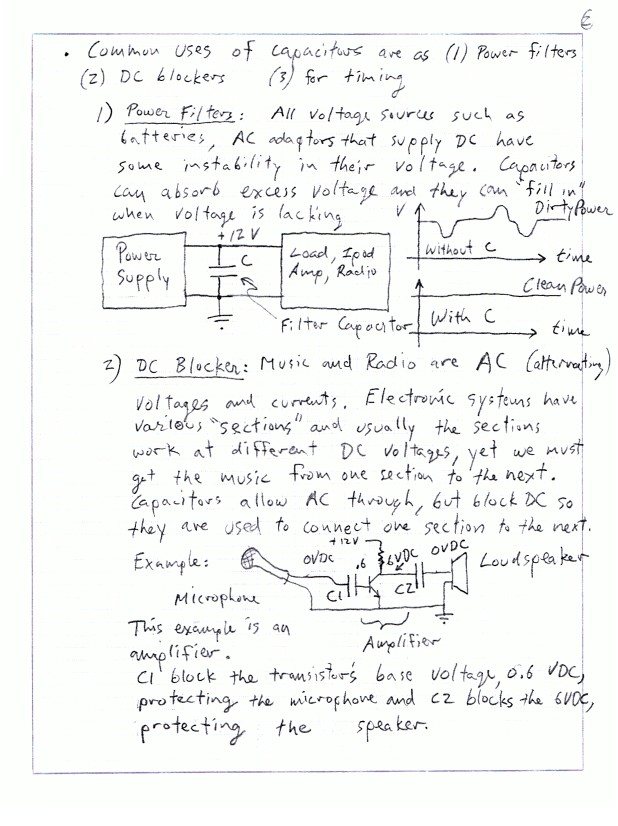 • Common uses of capacitors are as (1) Power filters
(2) DC blockers (3) for timing
1) Power Filters: All voltage sources such as
batteries, AC adaptors that supply DC have
some instability in their voltage. Capacitors
can absorb excess voltage and they can "fill in"
when voltage is lacking
V Dirty Power
Without C time
+12V
Power Supply
C
Load, Ipod
Amp, Radio
Clean Power
With C time
Filter Capacitor
2) DC Blocker: Music and Radio are AC (alternating)
voltages and currents. Electronic systems have
various "sections" and usually the sections
work at different DC voltages, yet we must
get the music from one section to the next.
Capacitors allow AC through, but block DC so
they are used to connect one section to the next.
Example:
+12V
0VDC .6 6VDC 0VDC
Loudspeaker
C1 C2
Microphone
Amplifier
This example is an
amplifier.
C1 block the transistor's base voltage, 0.6 VDC,
protecting the microphone and C2 blocks the 6VDC,
protecting the speaker.